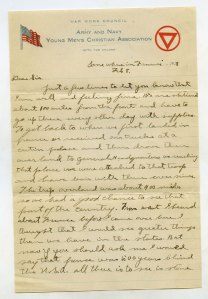 WAR WORK COUNCIL
ARMY AND NAVY
YOUNG MEN'S CHRISTIAN ASSOCIATION
WITH THE COLORS
Somewhere in France 191
Feb 5.
Dear Sis
Just a few lines to let you know that
I am well and feeling fine. It's me
about 100 miles from the front and have to
go up there every other day with supplies.
To get back to when we first landed in
france we received our trucks at a
certain place and then drove them
over land to general headquarters on reaching
that place we were attached to that troop
and have been with them ever since.
The trip overland was about 900 miles
so we had a good chance to see that
part of the country. Thats what I heard
about France before I came over here I
thought that I would see greater things
than we have in the states. But
now if you should ask me I would
say that france was 500 years behind
the U.S.A. all there is to see is stone